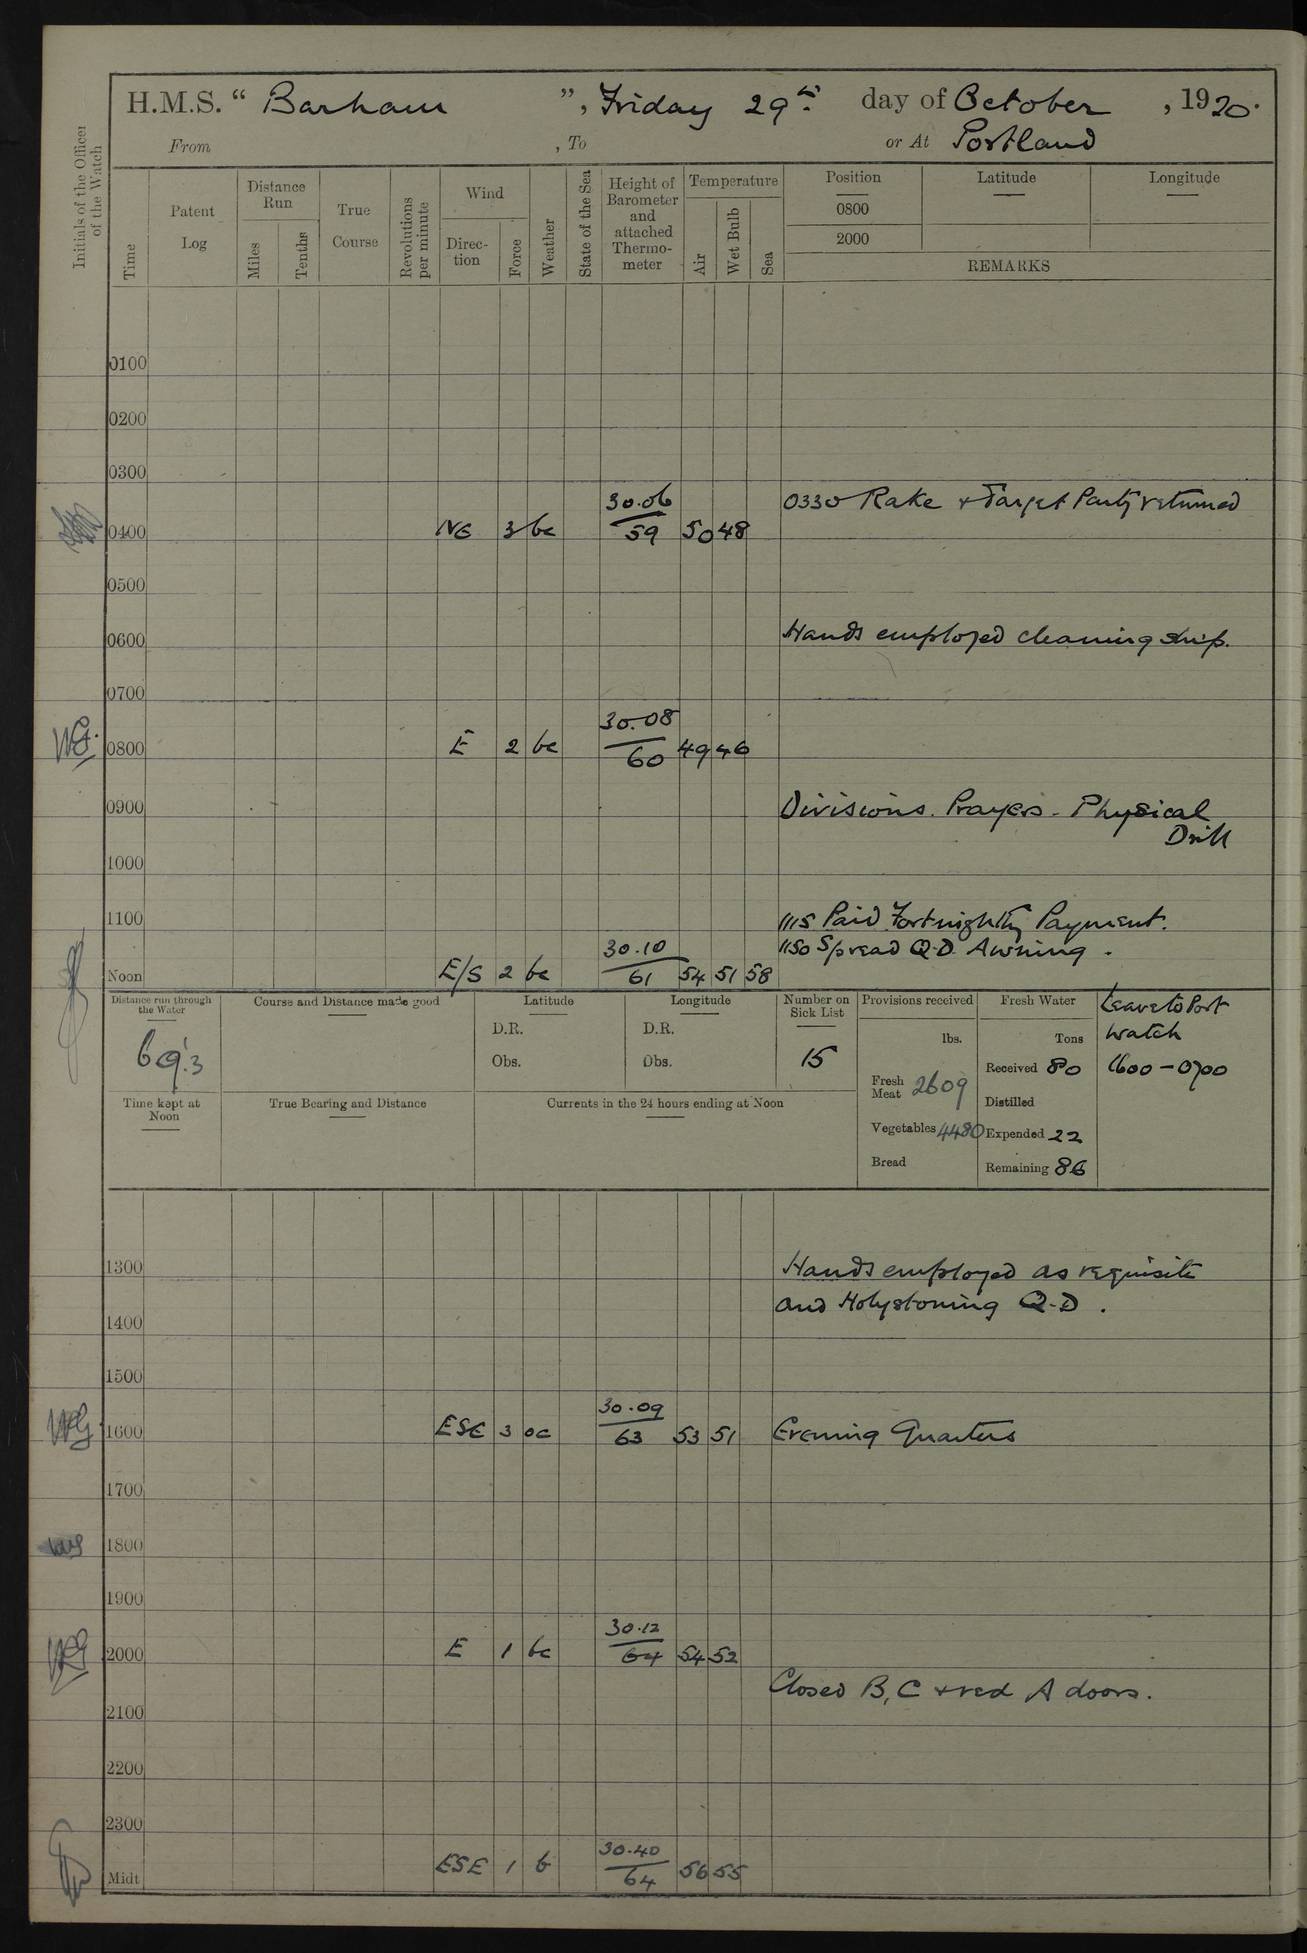 H.M.S. “ Barham ”, Friday 29th day of October , 1920.
From , To or At Portland
Initials of the Officer of the Watch
Time
Patent Log
Distance Run
Miles
Tenths
True Course
Revolutions per minute
Wind
Direc-tion
Force
Weather
State of the Sea
Height of Barometer and attached Thermo-meter
Temperature
Air
Wet Bulb
Sea
Position Latitude Longitude
0800
2000
REMARKS
0100
0200
0300
30.06 0330 Rake & Target Party returned
0400 NE 3 bc 59 50 48
0500
0600 Hands employed cleaning ship.
0700
30.08
0800 E 2 bc 60 49 46
0900 Divisions. Prayers - Physical
Drill
1000
1100 1115 Paid Fortnightly Payment.
30.10 1150 Spread Q.D. Awning .
Noon E/S 2 bc 61 54 51 58
Distance run through the Water
69.3
Course and Distance made good
Latitude
D.R.
Obs.
Longitude
D.R.
Obs.
Number on Sick List
15
Provisions received
lbs.
Fresh Meat 2609
Vegetables 4480
Bread
Fresh Water
Tons
Received 80
Distilled
Expended 22
Remaining 86
Leave to Port
Watch
1600 - 0700
Time kept at Noon
True Bearing and Distance
Currents in the 24 hours ending at Noon
1300 Hands employed as requisite
and Holystoning Q-D .
1400
1500
30.09
1600 ESE 3 oc 63 53 51 Evening Quarters
1700
1800
1900
30.12
2000 E 1 bc 64 54 52
Closed B, C & red A doors.
2100
2200
2300
30.40
Midt ESE 1 b 64 56 55